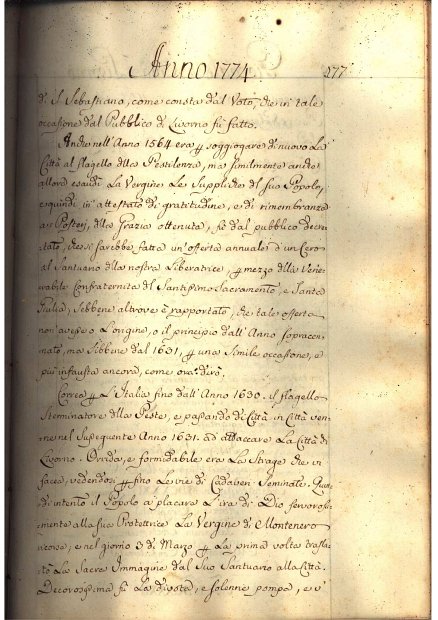 Anno 1774. 277
di S. Sebastiano, come consta dal Voto, che in tale
occasione dal Pubblico di Livorno fù fatto.
Anche nell'Anno 1564 era p soggiogare di nuovo La
Città al flagello della Pestilenza, ma similmente anche
allora esaudì La Vergine Le Suppliche del suo Popolo,
e quindi in attestato di gratitudine, e di rimembranza
ai Posteri, della Grazia ottenuta, fù dal pubblico decre
tato, che si sarebbe fatta un'offerta annuale d'un Cero
al Santuario della nostra Liberatrice, p mezzo della Vene
rabile Confraternita del Santissimo Sacramento, e Santa
Giulia, Sebbene altrove è rapportato, che tale offerta
non avesse L'origine, o il principio dall'Anno sopracen
nato, ma Sibbene dal 1631, p una Simile occasione, e
più infausta ancora, come ora dirò.
Correa p L'Italia fino dall'Anno 1630. il flagello
Sterminatore della Peste, e passando di Città in Città ven
ne nel Susseguente Anno 1631. ad attaccare La Città di
Livorno. Orrida, e formidabile era La Strage che vi
facea, vedendosi p fino Le vie di Cadaveri Seminate. Quin
di intento il Popolo a placare L'ira di Dio fervorosa
mente alla sua Protettrice La Vergine di Montenero
ricorse, e nel giorno 3 di Marzo p La prima volta trasla
tò La Sacra Immagine dal Suo Santuario alla Città.
Decorosissima fù La divota, e solenne pompa, e v'